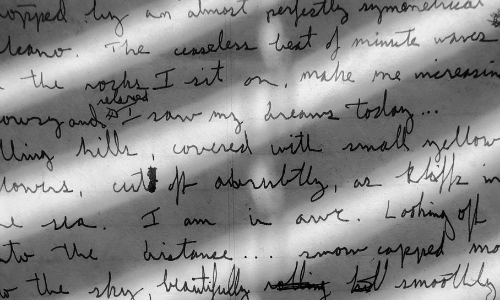 opped by an almost perfectly symmetrical
lcano. The ceaseless beat of minute waves
n the rocks I sit on, make me increasin
relaxed
owsy and I saw my dreams today...
lling hills, covered with small yellow
lowers, cut off abruptly, as cliffs in
he sea. I am in awe. Looking off
nto the distance... snow capped mo
o the sky, beautifully smoothly